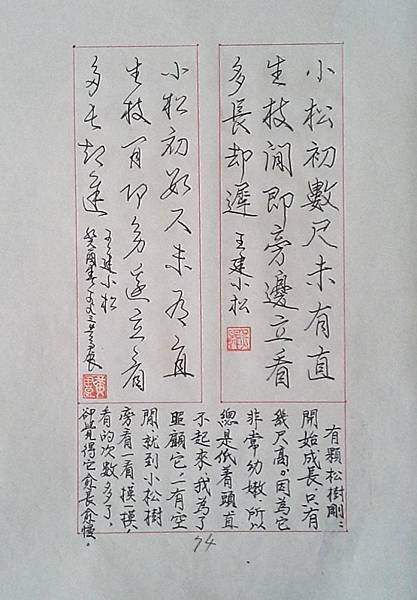 小松初數尺未有直
生枝閒即旁邊立看
多長却遲 王建小松
小松初數尺未有直
生枝閒即旁邊立看
多長却遲
王建小松
有顆松樹剛々
開始成長只有
幾尺高。因為它
非常幼嫩所以
總是低着頭直
不起來，我為了
照顧它，一有空
閒就到小松樹
旁看一看摸一摸，
看的次數多了，
卻覺得它愈長愈慢。
74